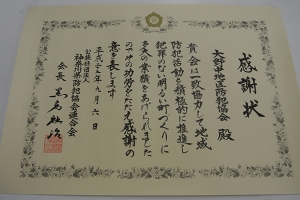 感謝状
大野北地区防犯協会 殿
貴会は一致協力して地域
防犯活動を積極的に推進し
犯罪のない明るい町づくりに
多大の業績をあげられました
のでその功労をたたえ感謝の
意を表します
平成 年九月六日
公益社団法人
神奈川県防犯協会連合会
会長